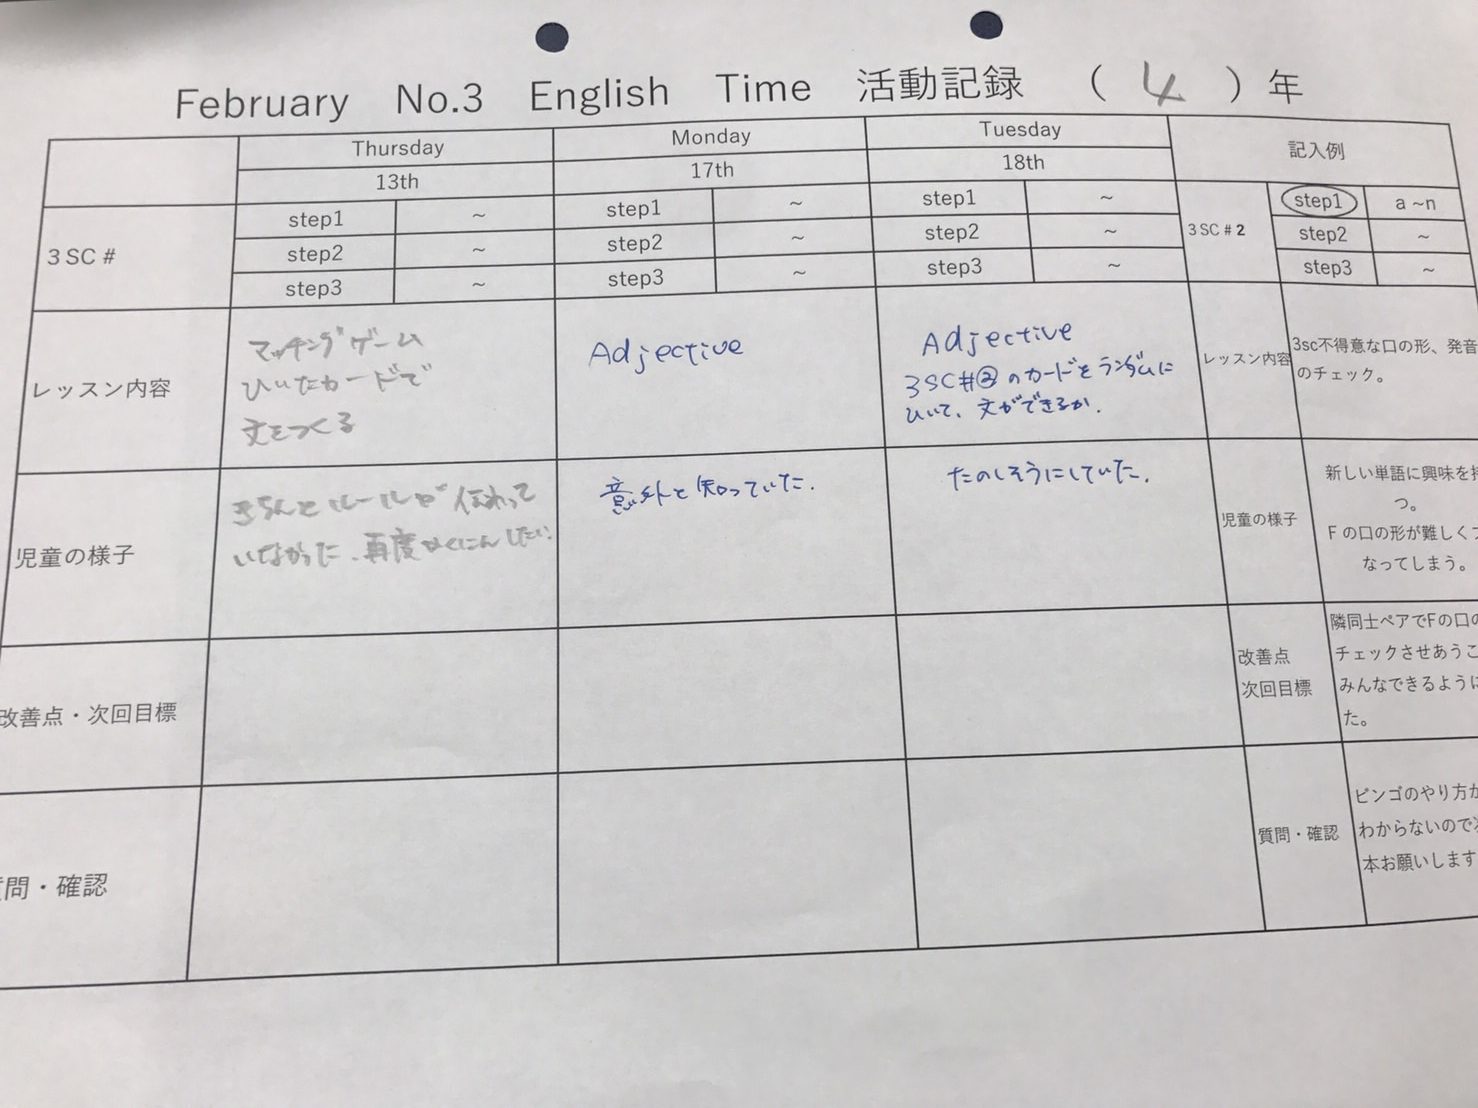 February No.3 English Time 活動記録 ( 4 ) 年
Thursday Monday Tuesday 記入例
13th 17th 18th
3 SC #
step1 ~ step1 ~ step1 ~ 3 SC # 2 step1 a ~n
step2 ~ step2 ~ step2 ~ step2 ~
step3 ~ step3 ~ step3 ~ step3 ~
レッスン内容
マッチングゲーム
ひいたカードで
文をつくる
Adjective
Adjective
3SC#②のカードをランダムに
ひいて、文ができるか.
レッスン内容
3sc不得意な口の形、発音
のチェック。
児童の様子
きちんとルールが伝わって
いなかった、再度かくにんしたい.
意外と知っていた.
たのしそうにしていた.
児童の様子
新しい単語に興味を持
つ。
F の口の形が難しくフ
なってしまう。
改善点・次回目標
改善点
次回目標
隣同士ペアでFの口の
チェックさせあうこ
みんなできるように
た。
質問・確認
質問・確認
ビンゴのやり方が
わからないので
本お願いします